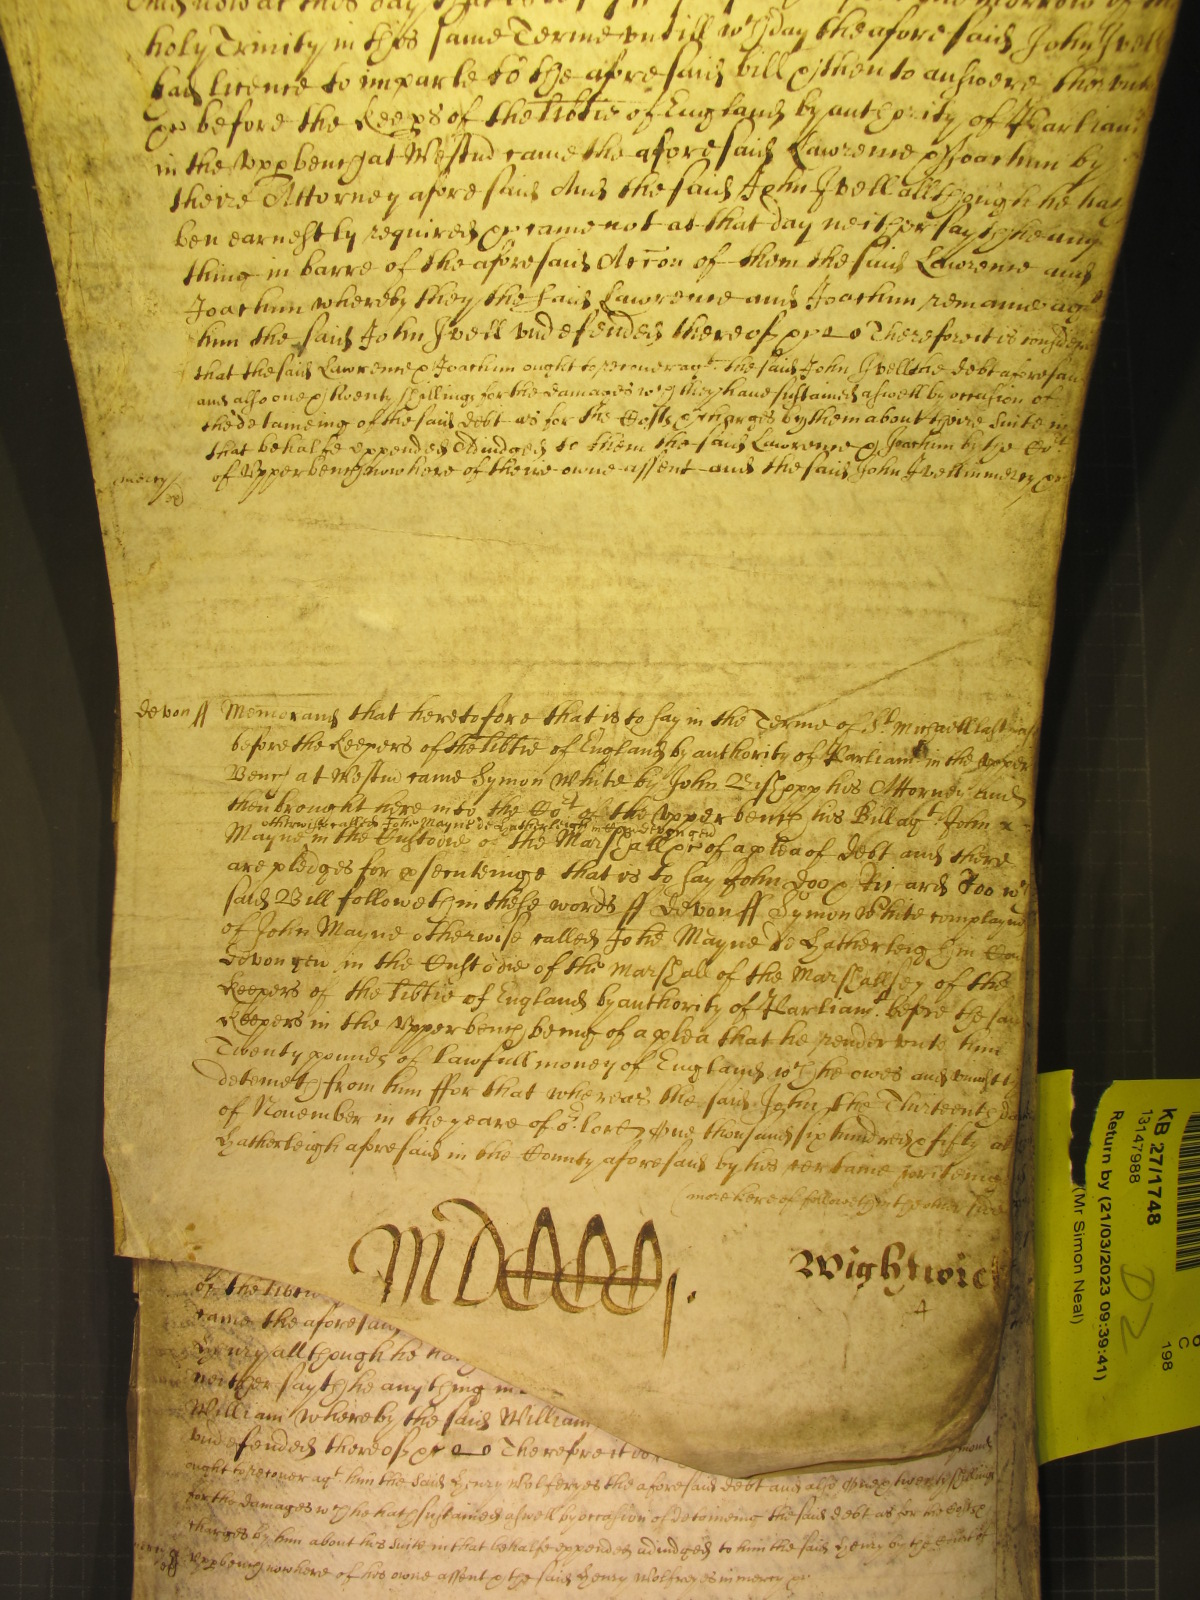 holy Trinity in this same Terme untill wch day the aforesaid John Ivell
had licence to imparle to the aforesaid bill & then to answere
&c before the Keeps of the libtie of England by authority of Parliamt
in the Upp bench at Westmr came the aforesaid Lawrence & Joachim by
theire Attorney aforesaid And the said John Ivell allthough he hath
ben earnestly required &c came not at that day neither sayth he any
thing in barre of the aforesaid Accon of them the said Lawrence and
Joachim whereby they the said Lawrence and Joachim remaine agt
him the said John Ivell undefended thereof &c Therefore it is considered
that the said Lawrence & Joachim ought to recover agt the said John Ivell the debt aforesaid
and also one & twenty shillings for the damages wch they have sustained aswell by occasion of
the detaineing of the said debt as for the Costs & charges by them about theire suite in
that behalfe expended Adiudged to them the said Lawrence & Joachim by the Cort
of Upper bench now here of theire owne assent and the said John Ivell in mercy &c
mercy
devon ss Memorand that heretofore that is to say in the Terme of St Michaell last past
before the Keepers of the libtie of England by authority of Parliamt in the upper
Bench at Westmr came Symon White by John Bishopp his Attorney And
then brought here into the Cort of the Upper bench his Bill agt John
otherwise called John Mayne de Hatherleigh in Com devon gen
Mayne in the Custodie of the Marshall &c of a plea of debt and there
are pledges for psecuteinge that is to say John Doo & Ricard Roo wch
said Bill followeth in these words ss Devon ss Symon White complaynes
of John Mayne otherwise called John Mayne de Hatherleigh in Com
Devon gen in the Custodie of the Marshall of the Marshallsey of the
Keepers of the libtie of England by authority of Parliamt before the said
Keepers in the Upper bench being of a plea that he render unto him
Twenty pounds of lawfull money of England wch he owes and uniustly
deteineth from him ffor that whereas the said John the Thirteenth day
of November in the yeare of or lord One thousand six hundred & fifty at
Hatherleigh aforesaid in the County aforesaid by his certaine writeing
(more hereof followeth in the other side
Wightwick
4
of the libtie
came the aforesaid
Henry allthough he hath
neither sayth he any thing in
William whereby the said William
undefended thereof &c Therefore it is
ought to recover agt him the said Henry Wolfreyes the aforesaid debt and also One & twenty shillings
for the damages wch he hath sustained aswell by occasion of detaineing the said debt as for the Costs &
charges by him about his suite in that behalfe expended adiudged to him the said Henry by the Court of
Upp bench now here of his owne assent & the said Henry Wolfreyes in mercy &c
KB 27/1748
13147988
Return by (21/03/2023 09:39:41)
(Mr Simon Neal)
D2
C
198